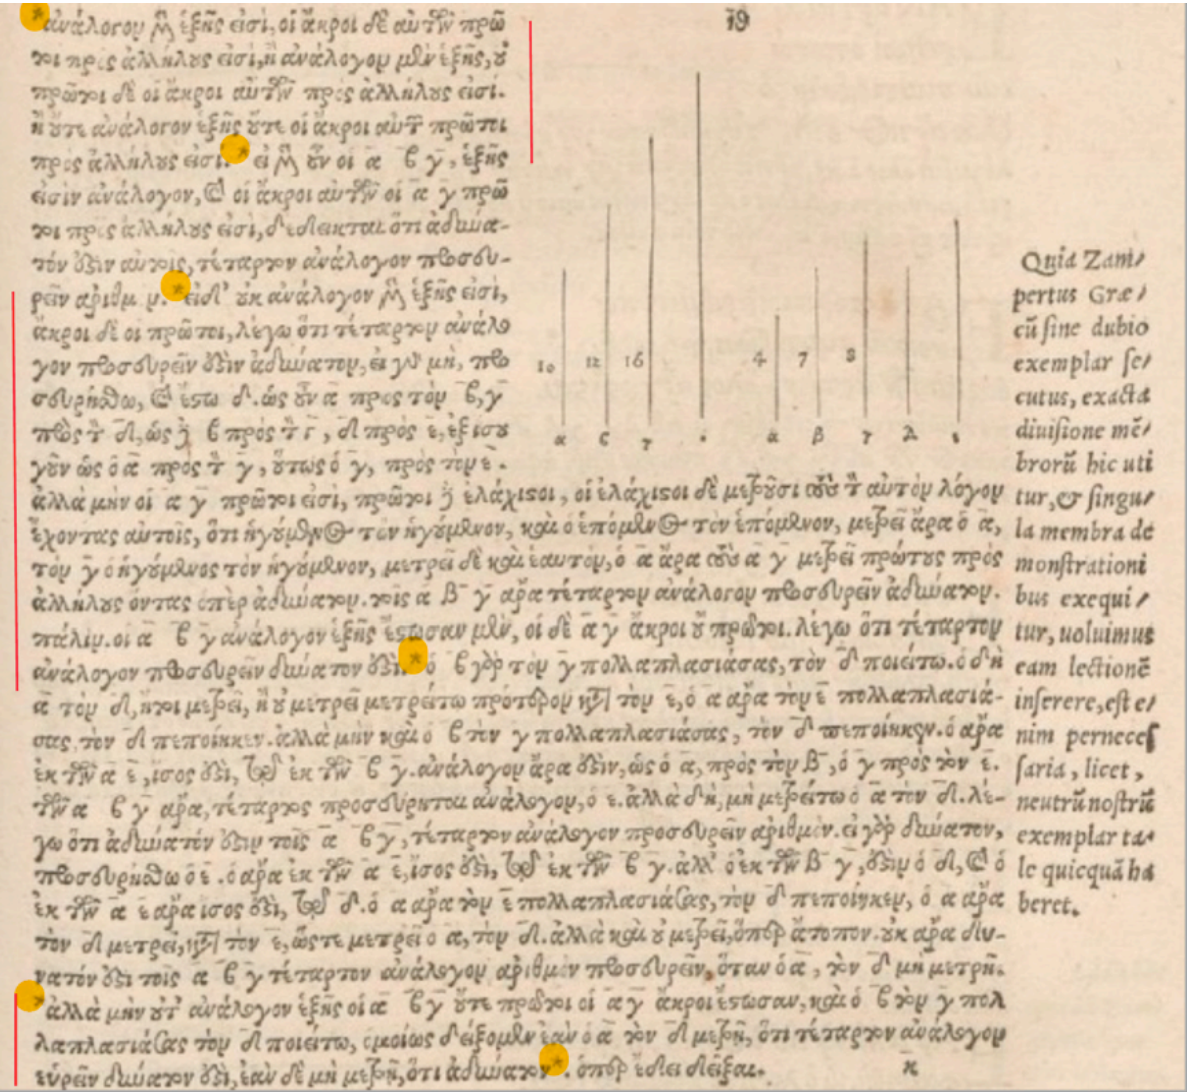 ιθ
*ἀνάλογον μὴ ἑξῆς εἰσί, οἱ ἄκροι δὲ αὐτῶν πρῶ
τοι πρὸς ἀλλήλους εἰσί, ἢ ἀνάλογον μὲν ἑξῆς, οὐ
πρῶτοι δὲ οἱ ἄκροι αὐτῶν πρὸς ἀλλήλους εἰσί.
ἢ οὔτε ἀνάλογον ἑξῆς οὔτε οἱ ἄκροι αὐτῶν πρῶτοι
πρὸς ἀλλήλους εἰσί. * εἰ μὲν οὖν οἱ α β γ, ἑξῆς
εἰσὶν ἀνάλογον, καὶ οἱ ἄκροι αὐτῶν οἱ α γ πρῶ
τοι πρὸς ἀλλήλους εἰσί, δέδεικται ὅτι ἀδύνα-
τόν ἐστιν αὐτοῖς, τέταρτον ἀνάλογον προσευ-
ρεῖν ἀριθμόν. *εἰ δ' οὐκ ἀνάλογον μὲν ἑξῆς εἰσί,
ἄκροι δὲ οἱ πρῶτοι, λέγω ὅτι τέταρτον ἀνάλο
γον προσευρεῖν ἐστὶν ἀδύνατον, εἰ γὰρ μὴ, προ
σευρήσθω, καὶ ἔστω δ. ὡς οὖν α πρὸς τὸν β, γ
πρὸς τ δ, ὡς δὲ β πρὸς τ γ, δ πρὸς ε, ἐξ ἴσου
γοῦν ὡς ὁ α πρὸς τ γ, οὕτως ὁ γ, πρὸς τὸν ε.
ἀλλὰ μὴν οἱ α γ πρῶτοι εἰσί, πρῶτοι δὲ ἐλάχιστοι, οἱ ἐλάχιστοι δὲ μετροῦσι τοὺς τ αὐτὸν λόγον
ἔχοντας αὐτοῖς, ὅτι ἡγούμενος τὸν ἡγούμενον, καὶ ὁ ἑπόμενος τὸν ἑπόμενον, μετρεῖ ἄρα ὁ α,
τὸν γ ὁ ἡγούμενος τὸν ἡγούμενον, μετρεῖ δὲ καὶ ἑαυτόν, ὁ α ἄρα τοὺς α γ μετρεῖ πρώτους πρὸς
ἀλλήλους ὄντας ὅπερ ἀδύνατον. τοῖς α β γ ἄρα τέταρτον ἀνάλογον προσευρεῖν ἀδύνατον.
πάλιν. οἱ α β γ ἀνάλογον ἑξῆς ἔστωσαν μὲν, οἱ δὲ α γ ἄκροι οὐ πρῶτοι. λέγω ὅτι τέταρτον
ἀνάλογον προσευρεῖν δυνατὸν ἐστί. * ὁ β γὰρ τὸν γ πολλαπλασιάσας, τὸν δ ποιείτω. ὁ δὴ
α τὸν δ, ἤτοι μετρεῖ, ἢ οὐ μετρεῖ μετρείτω πρότερον κατὰ τὸν ε, ὁ α ἄρα τὸν ε πολλαπλασιά-
σας, τὸν δ πεποίηκεν. ἀλλὰ μὴν καὶ ὁ β τὸν γ πολλαπλασιάσας, τὸν δ πεποίηκεν. ὁ ἄρα
ἐκ τῶν α ε, ἴσος ἐστὶ, τῷ ἐκ τῶν β γ. ἀνάλογον ἄρα ἐστὶν, ὡς ὁ α, πρὸς τὸν β, ὁ γ πρὸς τὸν ε.
τῶν α β γ ἄρα, τέταρτος προσεύρηται ἀνάλογον, ὁ ε. ἀλλὰ δὴ, μὴ μετρείτω ὁ α τὸν δ. λέ-
γω ὅτι ἀδύνατόν ἐστιν τοῖς α β γ, τέταρτον ἀνάλογον προσευρεῖν ἀριθμόν. εἰ γὰρ δυνατὸν,
προσευρήσθω ὁ ε. ὁ ἄρα ἐκ τῶν α ε, ἴσος ἐστὶ, τῷ ἐκ τῶν β γ. ἀλλ' ὁ ἐκ τῶν β γ, ἐστὶν ὁ δ, καὶ ὁ
ἐκ τῶν α ε ἄρα ἴσος ἐστὶ, τῷ δ. ὁ α ἄρα τὸν ε πολλαπλασιάσας, τὸν δ πεποίηκεν, ὁ α ἄρα
τὸν δ μετρεῖ, κατὰ τὸν ε, ὥστε μετρεῖ ὁ α, τὸν δ. ἀλλὰ καὶ οὐ μετρεῖ, ὅπερ ἄτοπον. οὐκ ἄρα δυ-
νατόν ἐστι τοῖς α β γ τέταρτον ἀνάλογον ἀριθμὸν προσευρεῖν, ὅταν ὁ α, τὸν δ μὴ μετρῇ.
*ἀλλὰ μὴν οὔτ' ἀνάλογον ἑξῆς οἱ α β γ οὔτε πρῶτοι οἱ α γ ἄκροι ἔστωσαν, καὶ ὁ β τὸν γ πολ
λαπλασιάσας τὸν δ ποιείτω, ὁμοίως δείξομεν ἐὰν ὁ α τὸν δ μετρῇ, ὅτι τέταρτον ἀνάλογον
εὑρεῖν δυνατὸν ἐστί, ἐὰν δὲ μὴ μετρῇ, ὅτι ἀδύνατον *. ὅπερ ἔδει δεῖξαι.
κ
10 12 16 4 7 8
α ϐ γ α β γ δ ε
Quia Zam/
pertus Græ/
cū sine dubio
exemplar se/
cutus, exacta
diuisione mē/
brorū hic uti
tur, & singu/
la membra de
monstrationi
bus exequi/
tur, uoluimus
eam lectionē
inserere, est e/
nim perneces
saria, licet,
neutrū nostrū
exemplar ta/
le quicquā ha
beret.